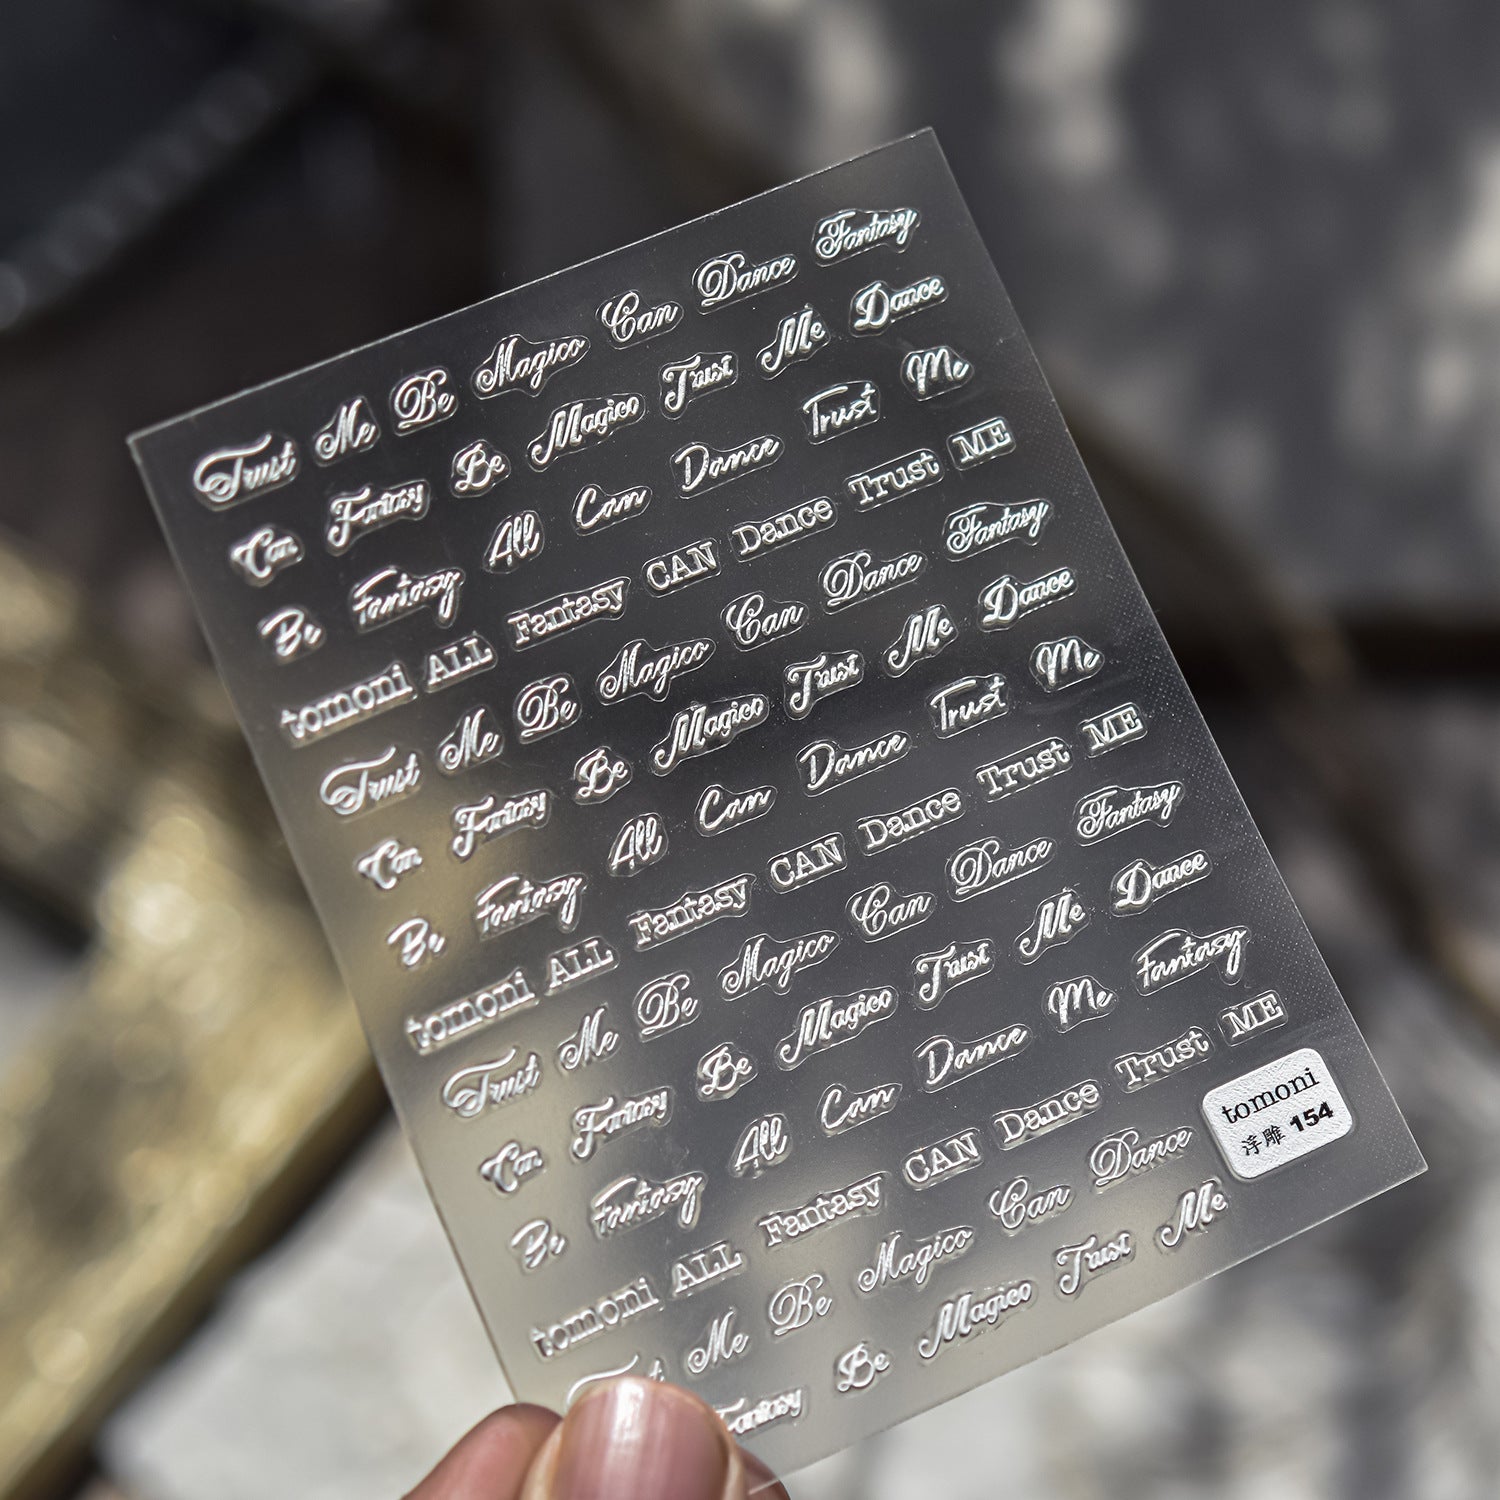 Trust Me Be Magico Can Dance Fantasy
Can Fantasy Be Magico Trust Me Dance
Be Fantasy All Can Dance Trust Me
tomoni ALL Fantasy CAN Dance Trust ME
Trust Me Be Magico Can Dance Fantasy
Can Fantasy Be Magico Trust Me Dance
Be Fantasy All Can Dance Trust Me
tomoni ALL Fantasy CAN Dance Trust ME
Trust Me Be Magico Can Dance Fantasy
Can Fantasy Be Magico Trust Me Dance
Be Fantasy All Can Dance Me Fantasy
tomoni ALL Fantasy CAN Dance Trust ME
Me Be Magico Can Dance
Fantasy Be Magico Trust Me
tomoni
浮雕 154